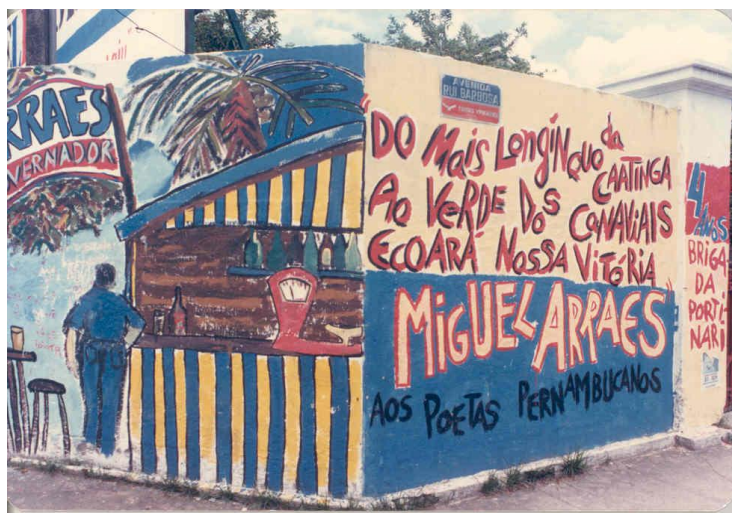 RRAES
VERNADOR
AVENIDA
RUI BARBOSA
"DO MAIS LONGÍNQUO da CAATINGA
AO VERDE DOS CANAVIAIS
ECOARÁ NOSSA VITÓRIA"
MIGUEL ARRAES
AOS POETAS PERNAMBUCANOS
4
ANOS
BRIGA
DA
PORTI
NARI